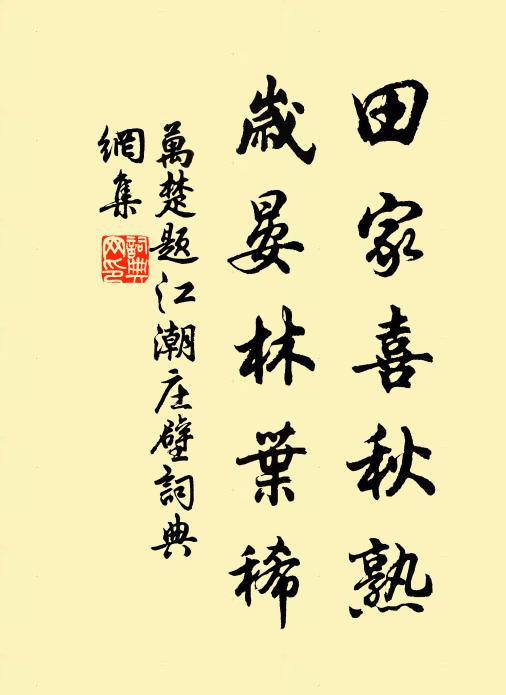 田家喜秋熟
歲晏林葉稀
萬楚题江潮庄壁詞典
網集
詞典網印